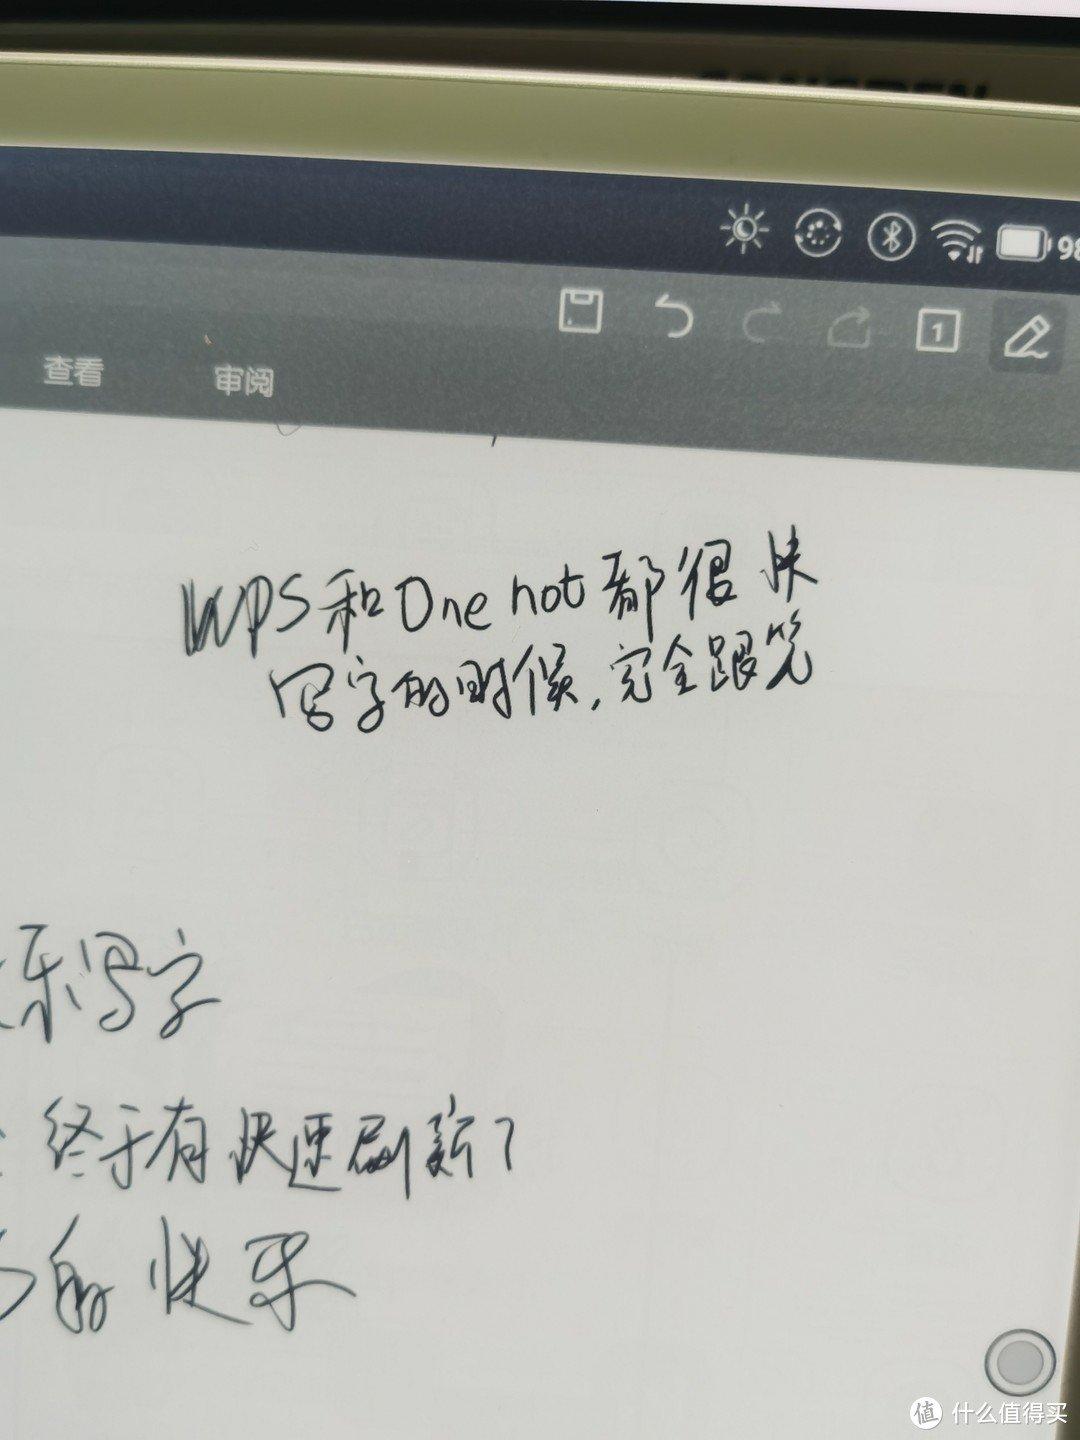 98
1
查看 审阅
WPS和One not都很快
写字的时候,完全跟笔
乐写字
终于有快速刷新了
的快乐
值 什么值得买